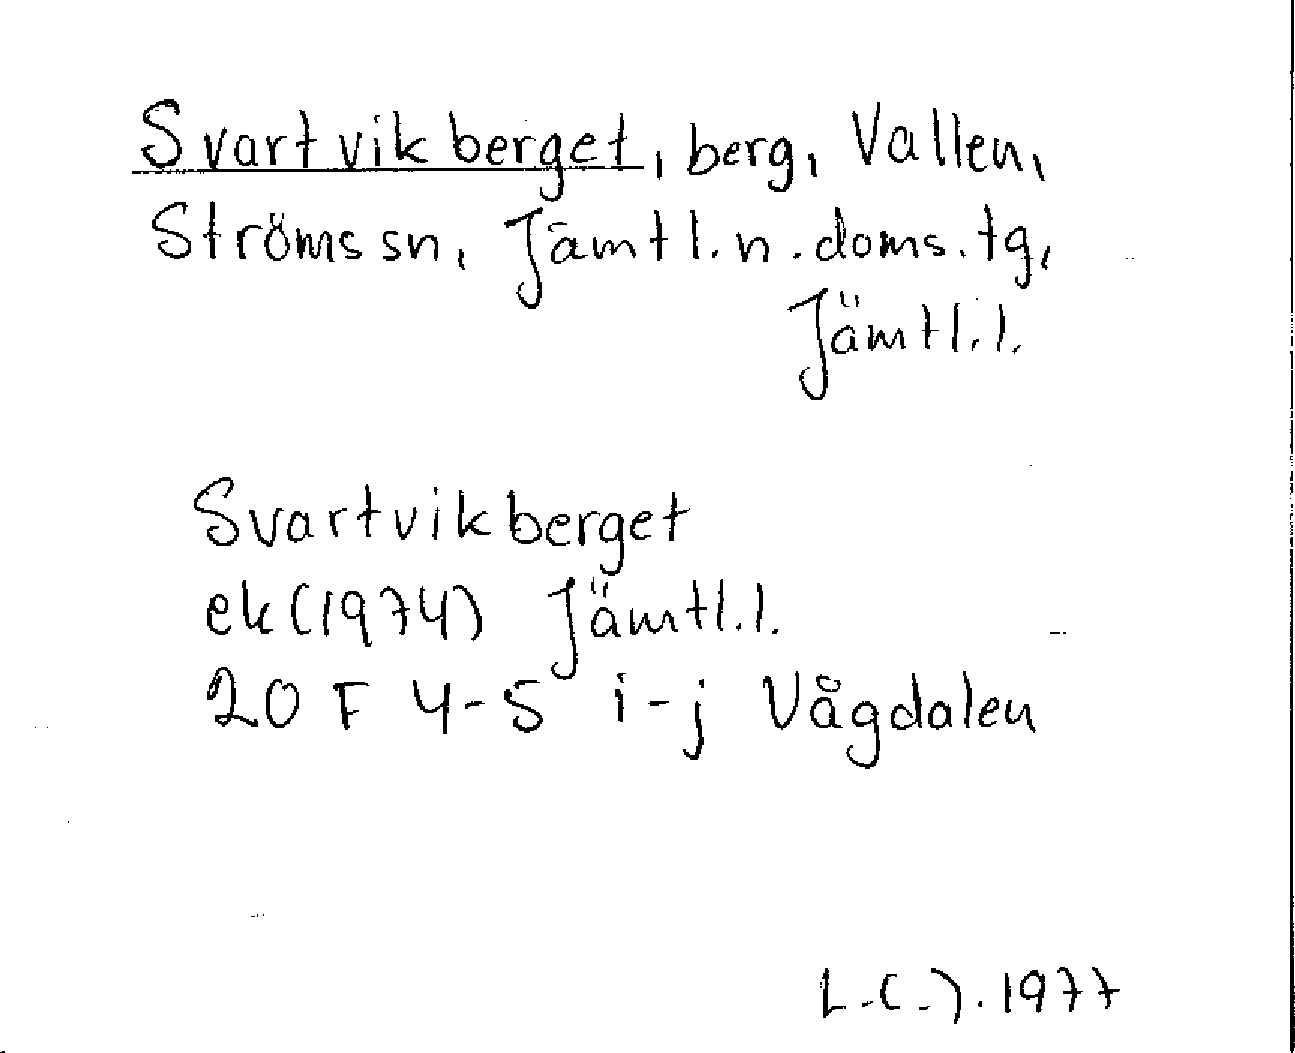 Svartvikberget, berg, Vallen,
Ströms sn, Jämtl. n. doms. tg,
Jämtl. l.
Svartvikberget
ek (1974) Jämtl. l.
20 F 4-5 i-j Vågdalen
L.C.J. 1977